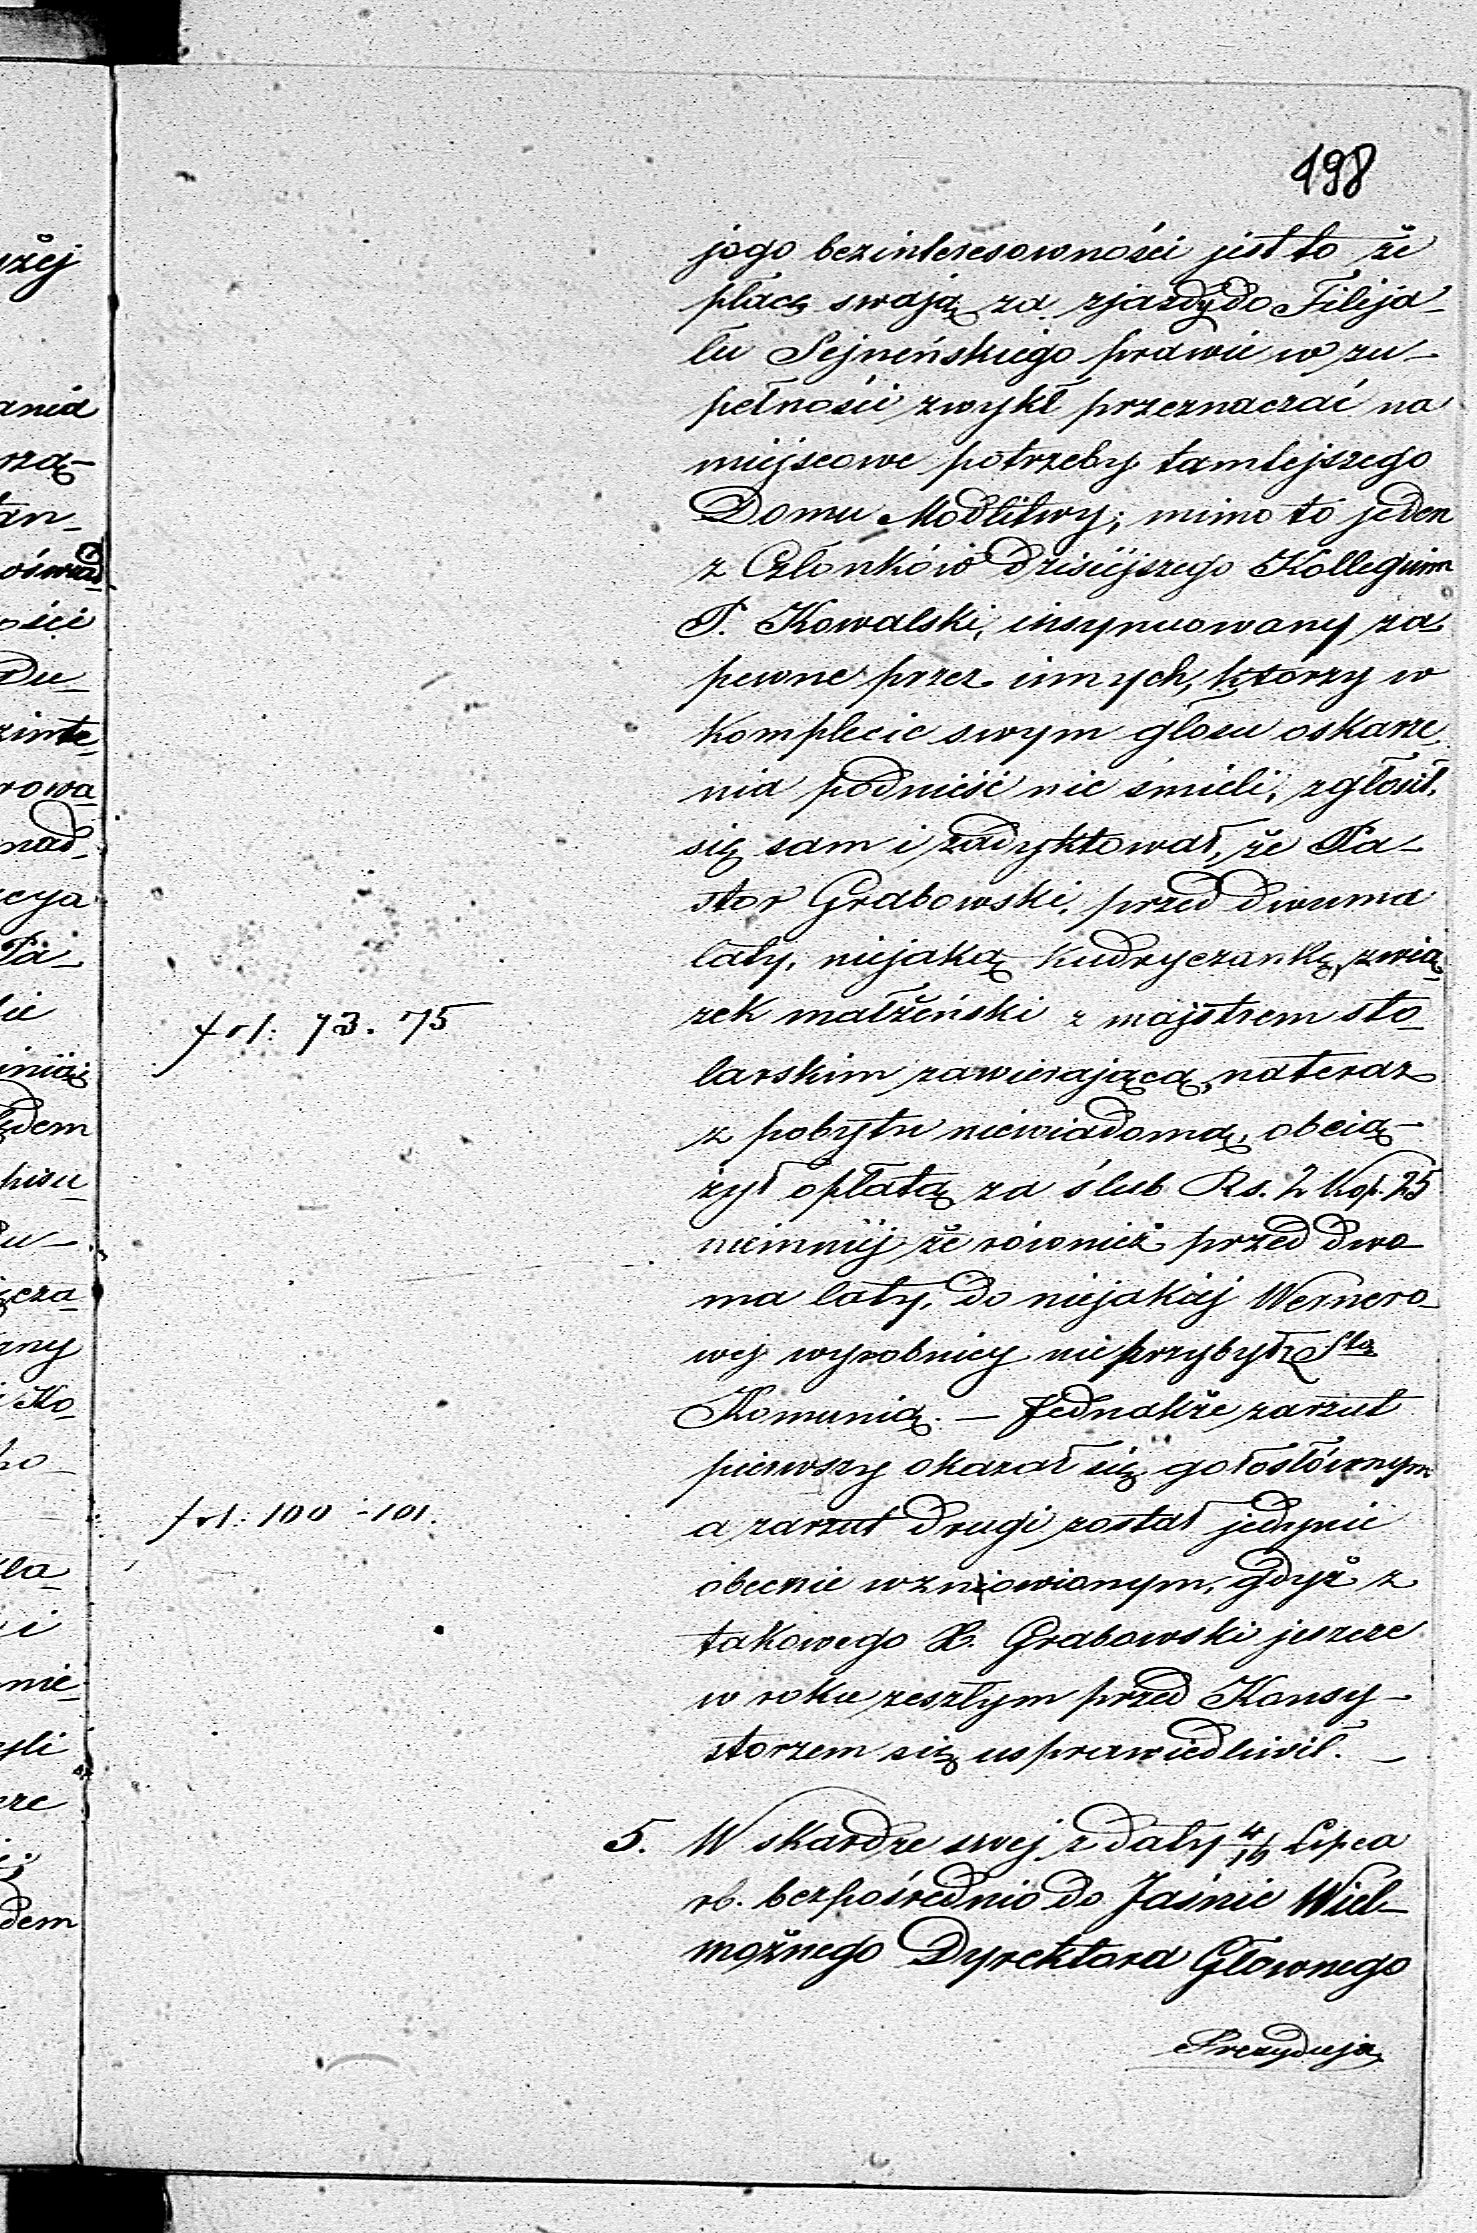 198
jego bezinteresowności jest to że
płacę swoją za zjazdy do Filija-
łu Sejneńskiego prawie w zu-
pełności zwykł przeznaczać na
miejscowe potrzeby tamtejszego
Domu Modlitwy; mimo to jeden
z Członków dzisiejszego Kollegium
P. Kowalski, insynuowany za-
pewne przez innych, którzy w
komplecie swym głosu oskarże-
nia podnieść nie śmieli, zgłosił
się sam i zadyktował, że Pa-
stor Grabowski, przed dwuma
laty, niejaką Kudryczankę, zwią-
fol: 73. 75
zek małżeński z majstrem sto-
larskim zawierającą, nateraz
z pobytu niewiadomą, obcią-
żył opłatą za ślub Rs. 2 Kop. 25
niemniej że również przed dwo-
ma laty, do niejakiej Wernero-
wej wyrobnicy nie przybył z Stą
Komunią. — Jednakże zarzut
pierwszy okazał się gołosłównym
fol: 100 - 101.
a zarzut drugi, został jedynie
obecnie wznowionym, gdyż z
takowego X. Grabowski jeszcze
w roku zeszłym przed Konsy-
storzem się usprawiedliwił. —
5. W skardze swej z daty 4/16 Lipca
rb. bezpośrednio do Jaśnie Wiel-
możnego Dyrektora Głównego
Prezydują